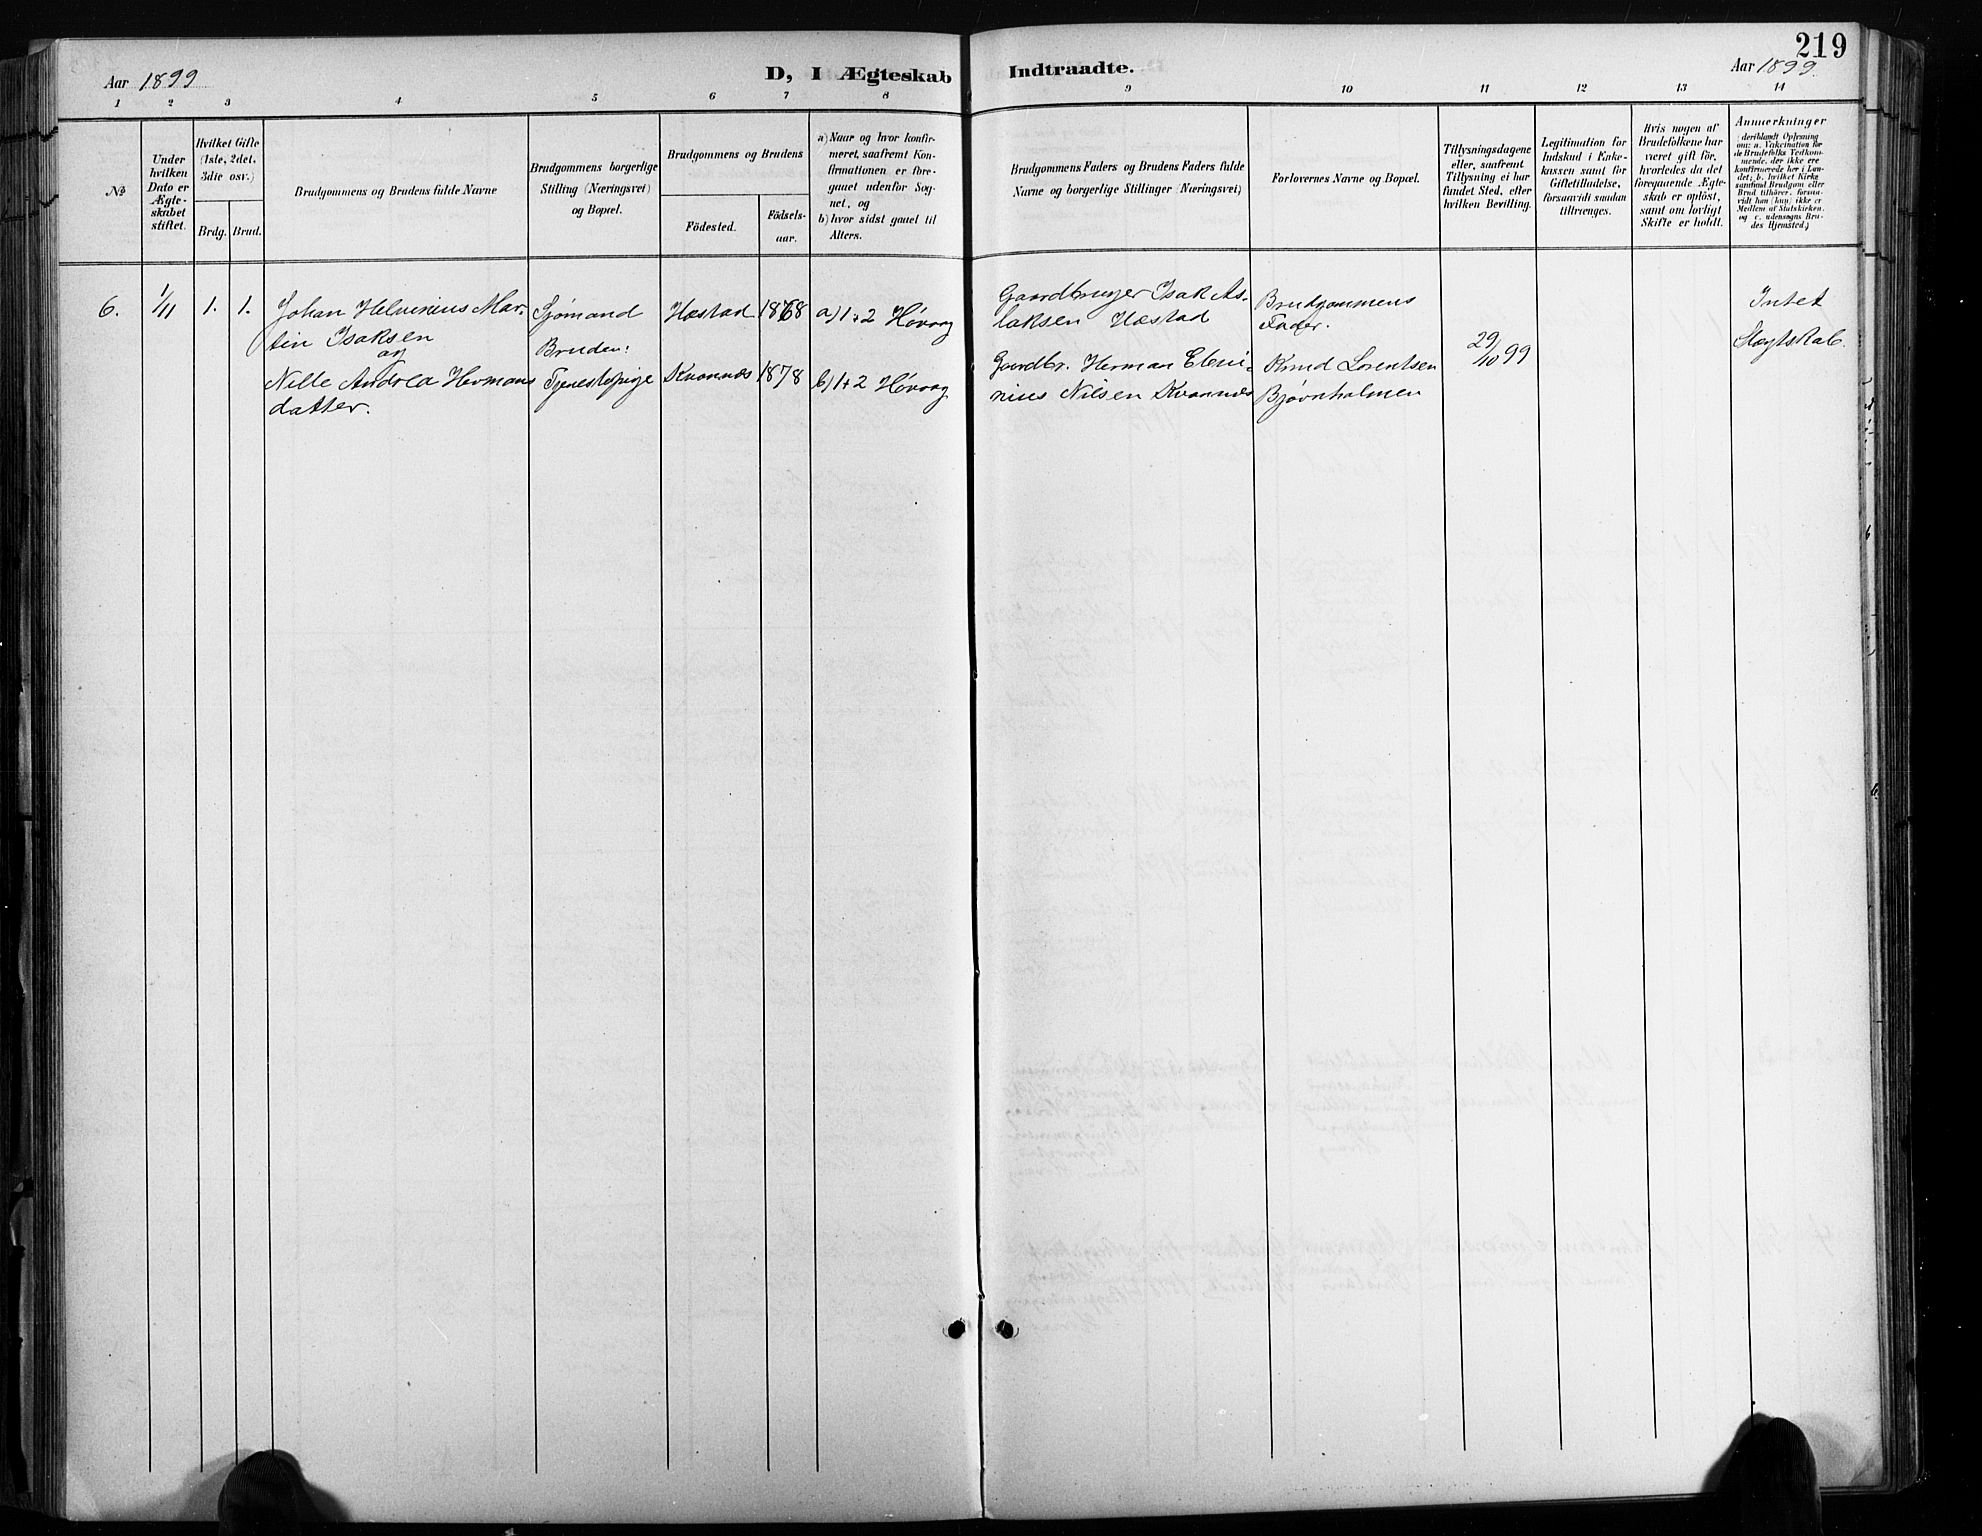 219
Aar 1899
D, I Ægteskab Indtraadte.
Aar 1899.
1 2 3 4 5 6 7 8 9 10 11 12 13 14
№
Under
hvilken
Dato er
Ægte-
skabet
stiftet.
Hvilket Gifte
(1ste, 2det,
3die osv.)
Brdg. Brud.
Brudgommens og Brudens fulde Navne
Brudgommens borgerlige
Stilling (Næringsvei)
og Bopæl.
Brudgommens og Brudens
Födested.
Födsels-
aar.
a) Naar og hvor konfir-
meret, saafremt Kon-
firmationen er fore-
gaaet udenfor Sog-
net, og
b) hvor sidst gaaet til
Alters.
Brudgommens Faders og Brudens Faders fulde
Navne og borgerlige Stillinger (Næringsvei)
Forlovernes Navne og Bopæl.
Tillysningsdagene
eller, saafremt
Tillysning ei har
fundet Sted, efter
hvilken Bevilling.
Legitimation for
Indskud i Enke-
kassen samt for
Giftetilladelse,
forsaavidt saadan
tiltrænges.
Hvis nogen af
Brudefolkene har
været gift för,
hvorledes da det
foregaaende Ægte-
skab er oplöst,
samt om lovligt
Skifte er holdt.
Anmærkninger
(deriblandt Oplysning
om: a. Vakcination for
de Brudefolks Vedkom-
mende, der ikke ere
konfirmerede her i Lan-
det; b. hvilket Kirke-
samfund Brudgom eller
Brud tilhörer, forsaa-
vidt han (hun) ikke er
Medlem af Statskirken,
og c. udensogns Bru-
des Hjemsted.)
6. 1/11 1. 1.
Johan Helminius Mar-
tin Isaksen
og
Nille Andrea Hermans
datter.
Sjømand
Bruden:
Tjenestepige
Hæstad 1868
Kvannes 1878
a) 1+2 Høvaag
b) 1+2 Høvaag
Gaardbruger Isak As-
laksen Hæstad
Gaardbr. Herman Elmi-
nius Nilsen Kvannes
Brudgommens
Fader.
Knud Lorentsen
Bjørnholmen
29/10 99
Intet
Slægtskab.